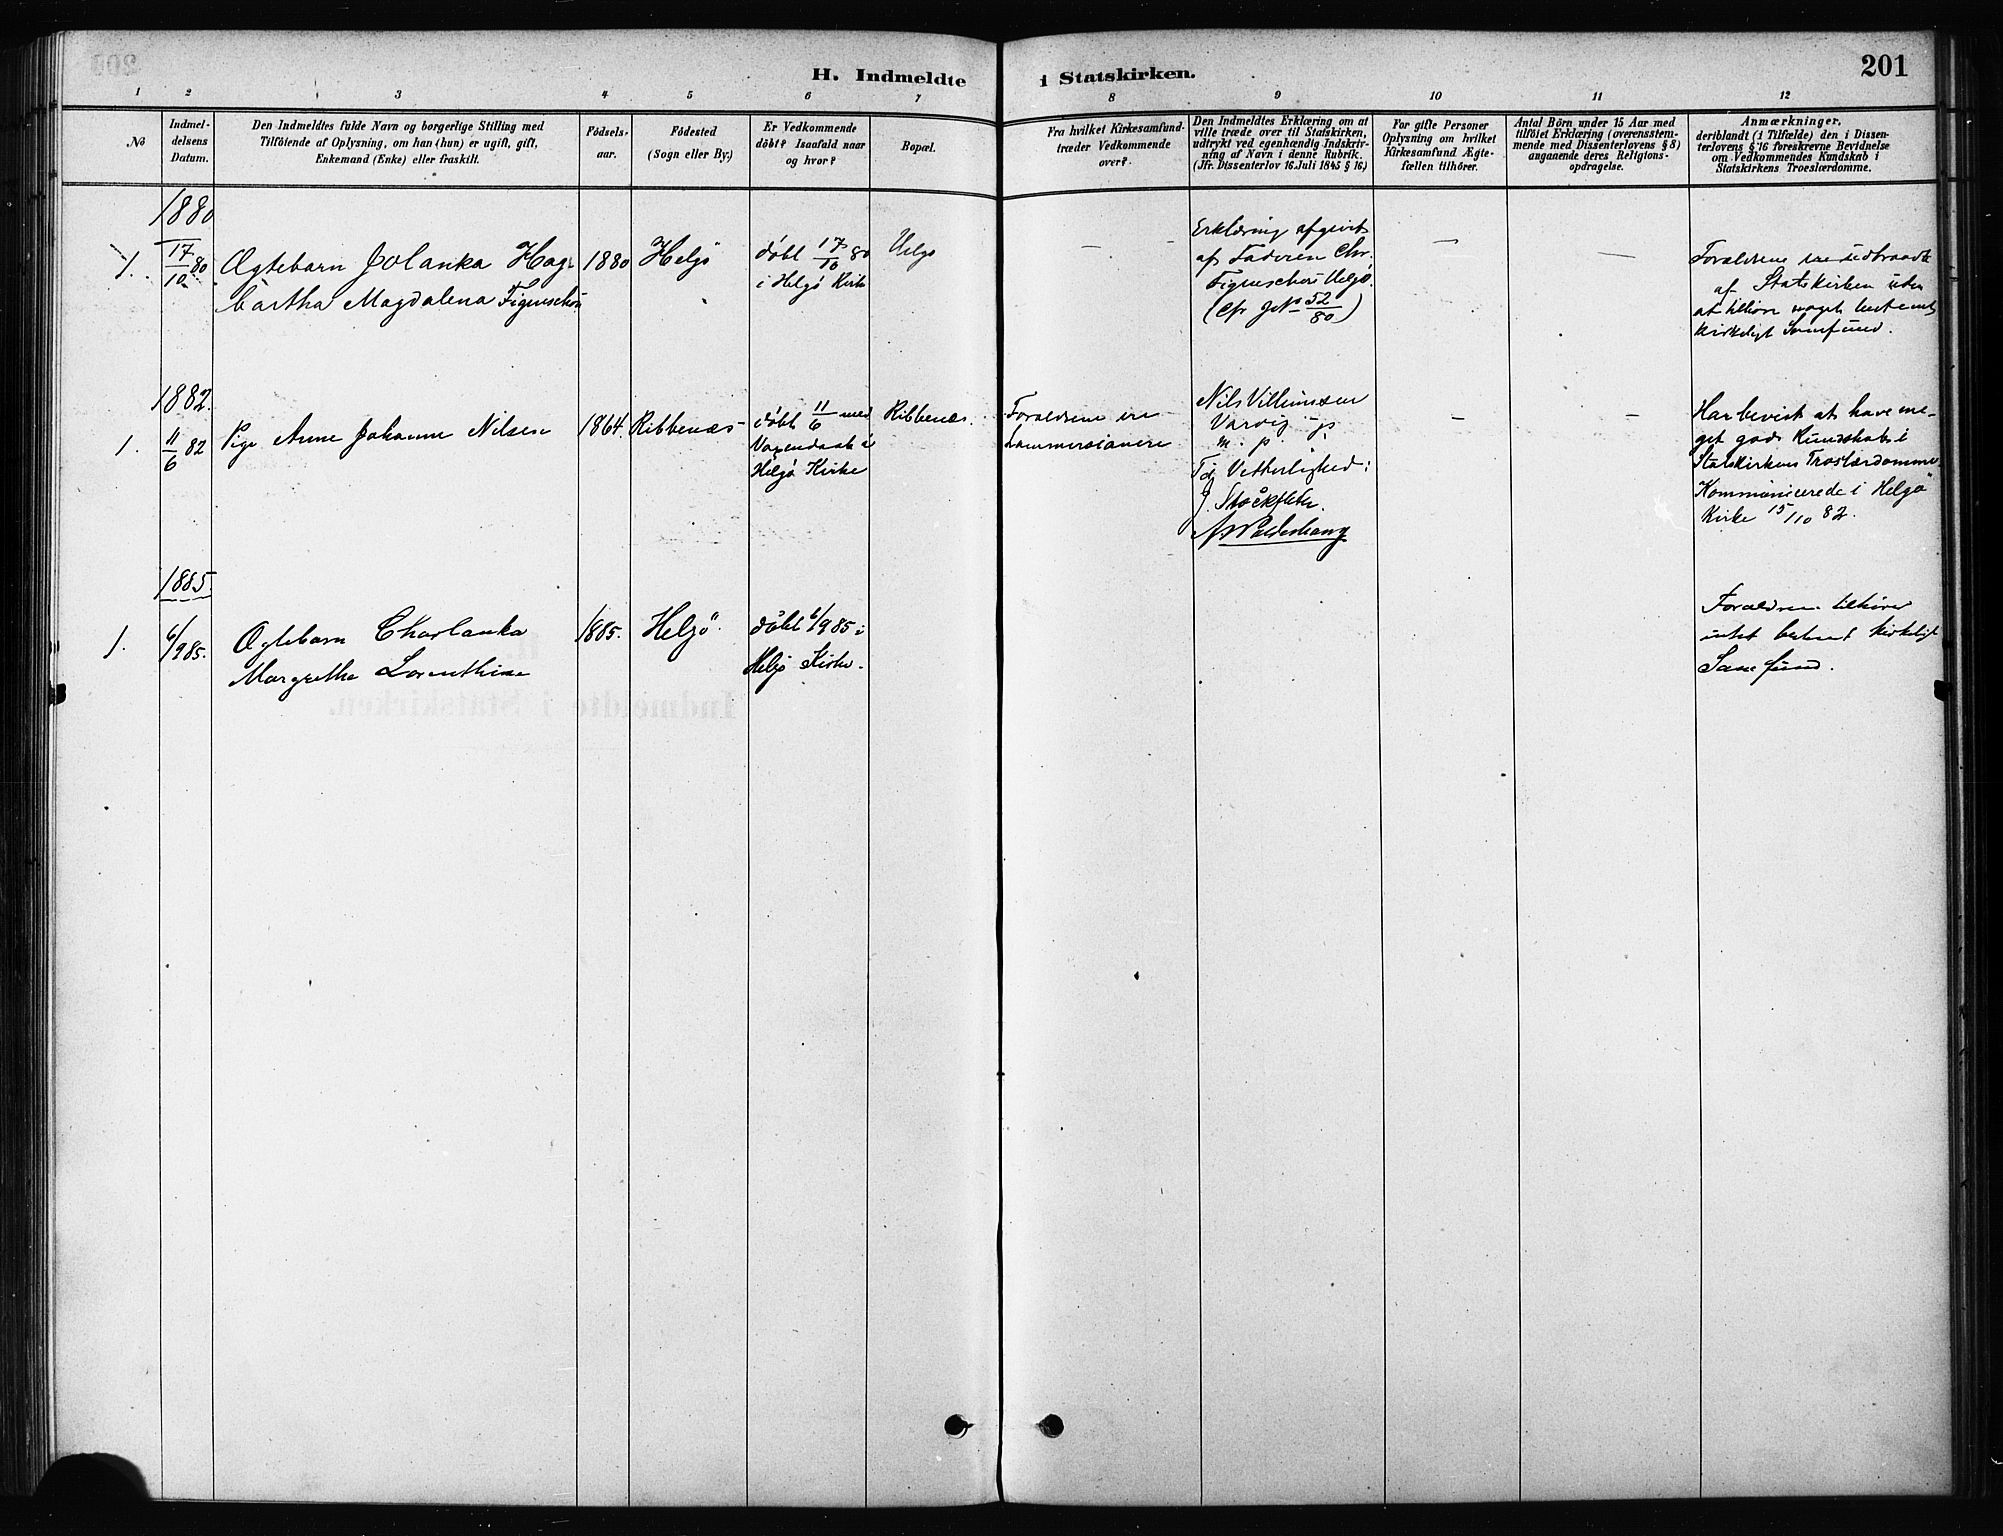 H. Indmeldte i Statskirken.
201
1 2 3 4 5 6 7 8 9 10 11 12
No
Indmel-
delsens
Datum.
Den Indmeldtes fulde Navn og borgerlige Stilling med
Tilföiende af Oplysning, om han (hun) er ugift, gift,
Enkemand (Enke) eller fraskilt.
Födsels-
aar.
Födested
(Sogn eller By.)
Er Vedkommende
döbt? Isaafald naar
og hvor?
Bopæl.
Fra hvilket Kirkesamfund
træder Vedkommende
over?
Den Indmeldtes Erklæring om at
ville træde over til Statskirken,
udtrykt ved egenhændig Indskriv-
ning af Navn i denne Rubrik.
(Jfr. Dissenterlov 16. Juli 1845 § 16)
For gifte Personer
Oplysning om hvilket
Kirkesamfund Ægte-
fællen tilhörer.
Antal Börn under 15 Aar med
tilföiet Erklæring (overensstem-
mende med Dissenterlovens § 8)
angaaende deres Religions-
opdragelse.
Anmærkninger,
deriblandt (i Tilfælde) den i Dissen-
terlovens § 16 foreskrevne Bevidnelse
om Vedkommendes Kundskab i
Statskirkens Troeslærdomme.
1880
1. 17/10 80
Ægtebarn Jolanka Hag-
bartha Magdalena Figenschou
1880
Helgö
döbt 17/10 80
i Helgö Kirke
Helgö
— —
Erklæring afgivet
af Faderen Chr.
Figenschou Helgö.
(Cfr No 52/80)
—
—
Forældrene ere udtraadte
af Statskirken uden
at tilhøre noget bestemt
kirkeligt Samfund.
1882.
1. 11/6 82
Pige Anne Johanne Nilsen
1864.
Ribbenæs
döbt 11/6 med
Voxendaab i
Helgö Kirke
Ribbenæs.
Forældrene ere
Lammersianere
Nils Villumsen
Varvig
m. p. p.
Til Vitterlighed:
J. Stockfleth.
—
—
Har bevist at have me-
get god Kundskab i
Statskirkens Troslærdomme.
Kommunicerede i Helgö
Kirke 15/10 82.
1885.
1. 6/9 85.
Ægtebarn Charlanka
Margrethe Lorenthine
1885.
Helgö
döbt 6/9 85 i
Helgö Kirke.
Forældrene tilhører
intet bestemt kirkeligt
Samfund.
Indmeldte i Statskirken.